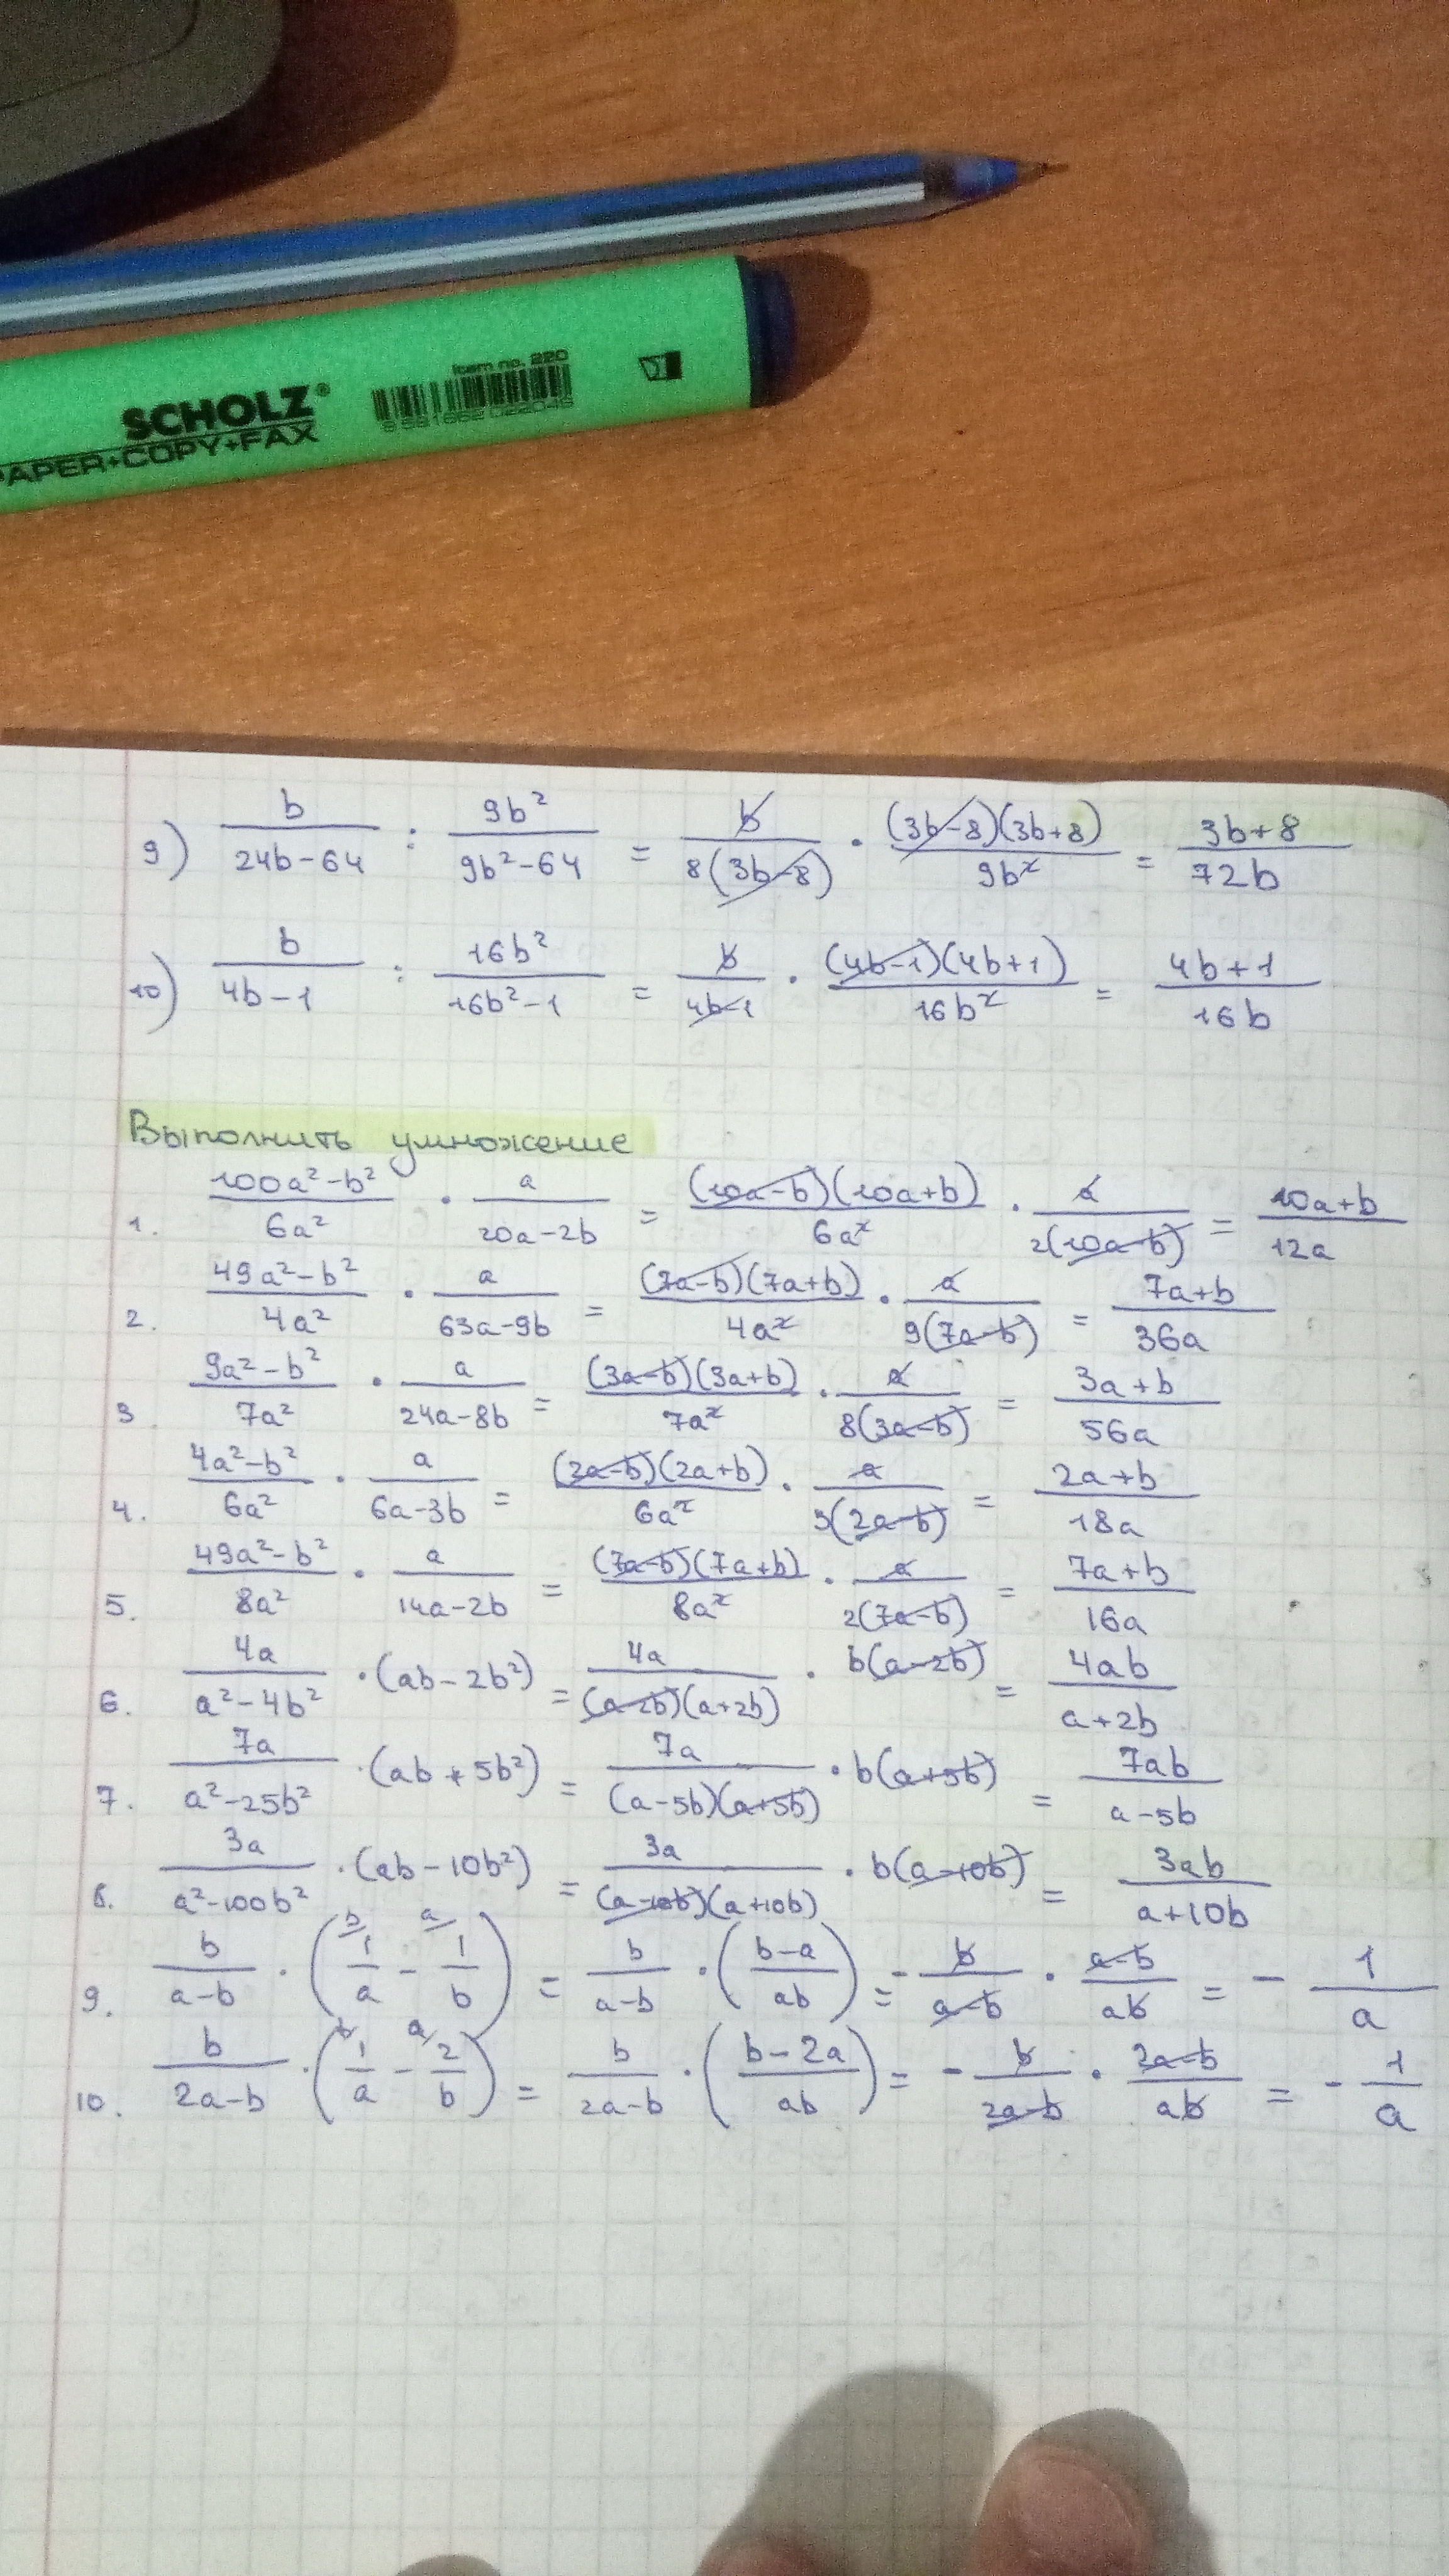 Item no. 220
SCHOLZ®
PAPER+COPY+FAX
9) b/(24b-64) : 9b²/(9b²-64) = b/(8(3b-8)) · (3b-8)(3b+8)/(9b²) = (3b+8)/(72b)
10) b/(4b-1) : 16b²/(16b²-1) = b/(4b-1) · (4b-1)(4b+1)/(16b²) = (4b+1)/(16b)
Выполнить умножение
1. (100a²-b²)/(6a²) · a/(20a-2b) = (10a-b)(10a+b)/(6a²) · a/(2(10a-b)) = (10a+b)/(12a)
2. (49a²-b²)/(4a²) · a/(63a-9b) = (7a-b)(7a+b)/(4a²) · a/(9(7a-b)) = (7a+b)/(36a)
3 (9a²-b²)/(7a²) · a/(24a-8b) = (3a-b)(3a+b)/(7a²) · a/(8(3a-b)) = (3a+b)/(56a)
4. (4a²-b²)/(6a²) · a/(6a-3b) = (2a-b)(2a+b)/(6a²) · a/(3(2a-b)) = (2a+b)/(18a)
5. (49a²-b²)/(8a²) · a/(14a-2b) = (7a-b)(7a+b)/(8a²) · a/(2(7a-b)) = (7a+b)/(16a)
6. 4a/(a²-4b²) · (ab-2b²) = 4a/((a-2b)(a+2b)) · b(a-2b) = 4ab/(a+2b)
7. 7a/(a²-25b²) · (ab+5b²) = 7a/((a-5b)(a+5b)) · b(a+5b) = 7ab/(a-5b)
8. 3a/(a²-100b²) · (ab-10b²) = 3a/((a-10b)(a+10b)) · b(a-10b) = 3ab/(a+10b)
9. b/(a-b) · (1/a - 1/b) = b/(a-b) · ((b-a)/(ab)) = - b/(a-b) · (a-b)/(ab) = - 1/a
10. b/(2a-b) · (1/a - 2/b) = b/(2a-b) · ((b-2a)/(ab)) = - b/(2a-b) · (2a-b)/(ab) = - 1/a